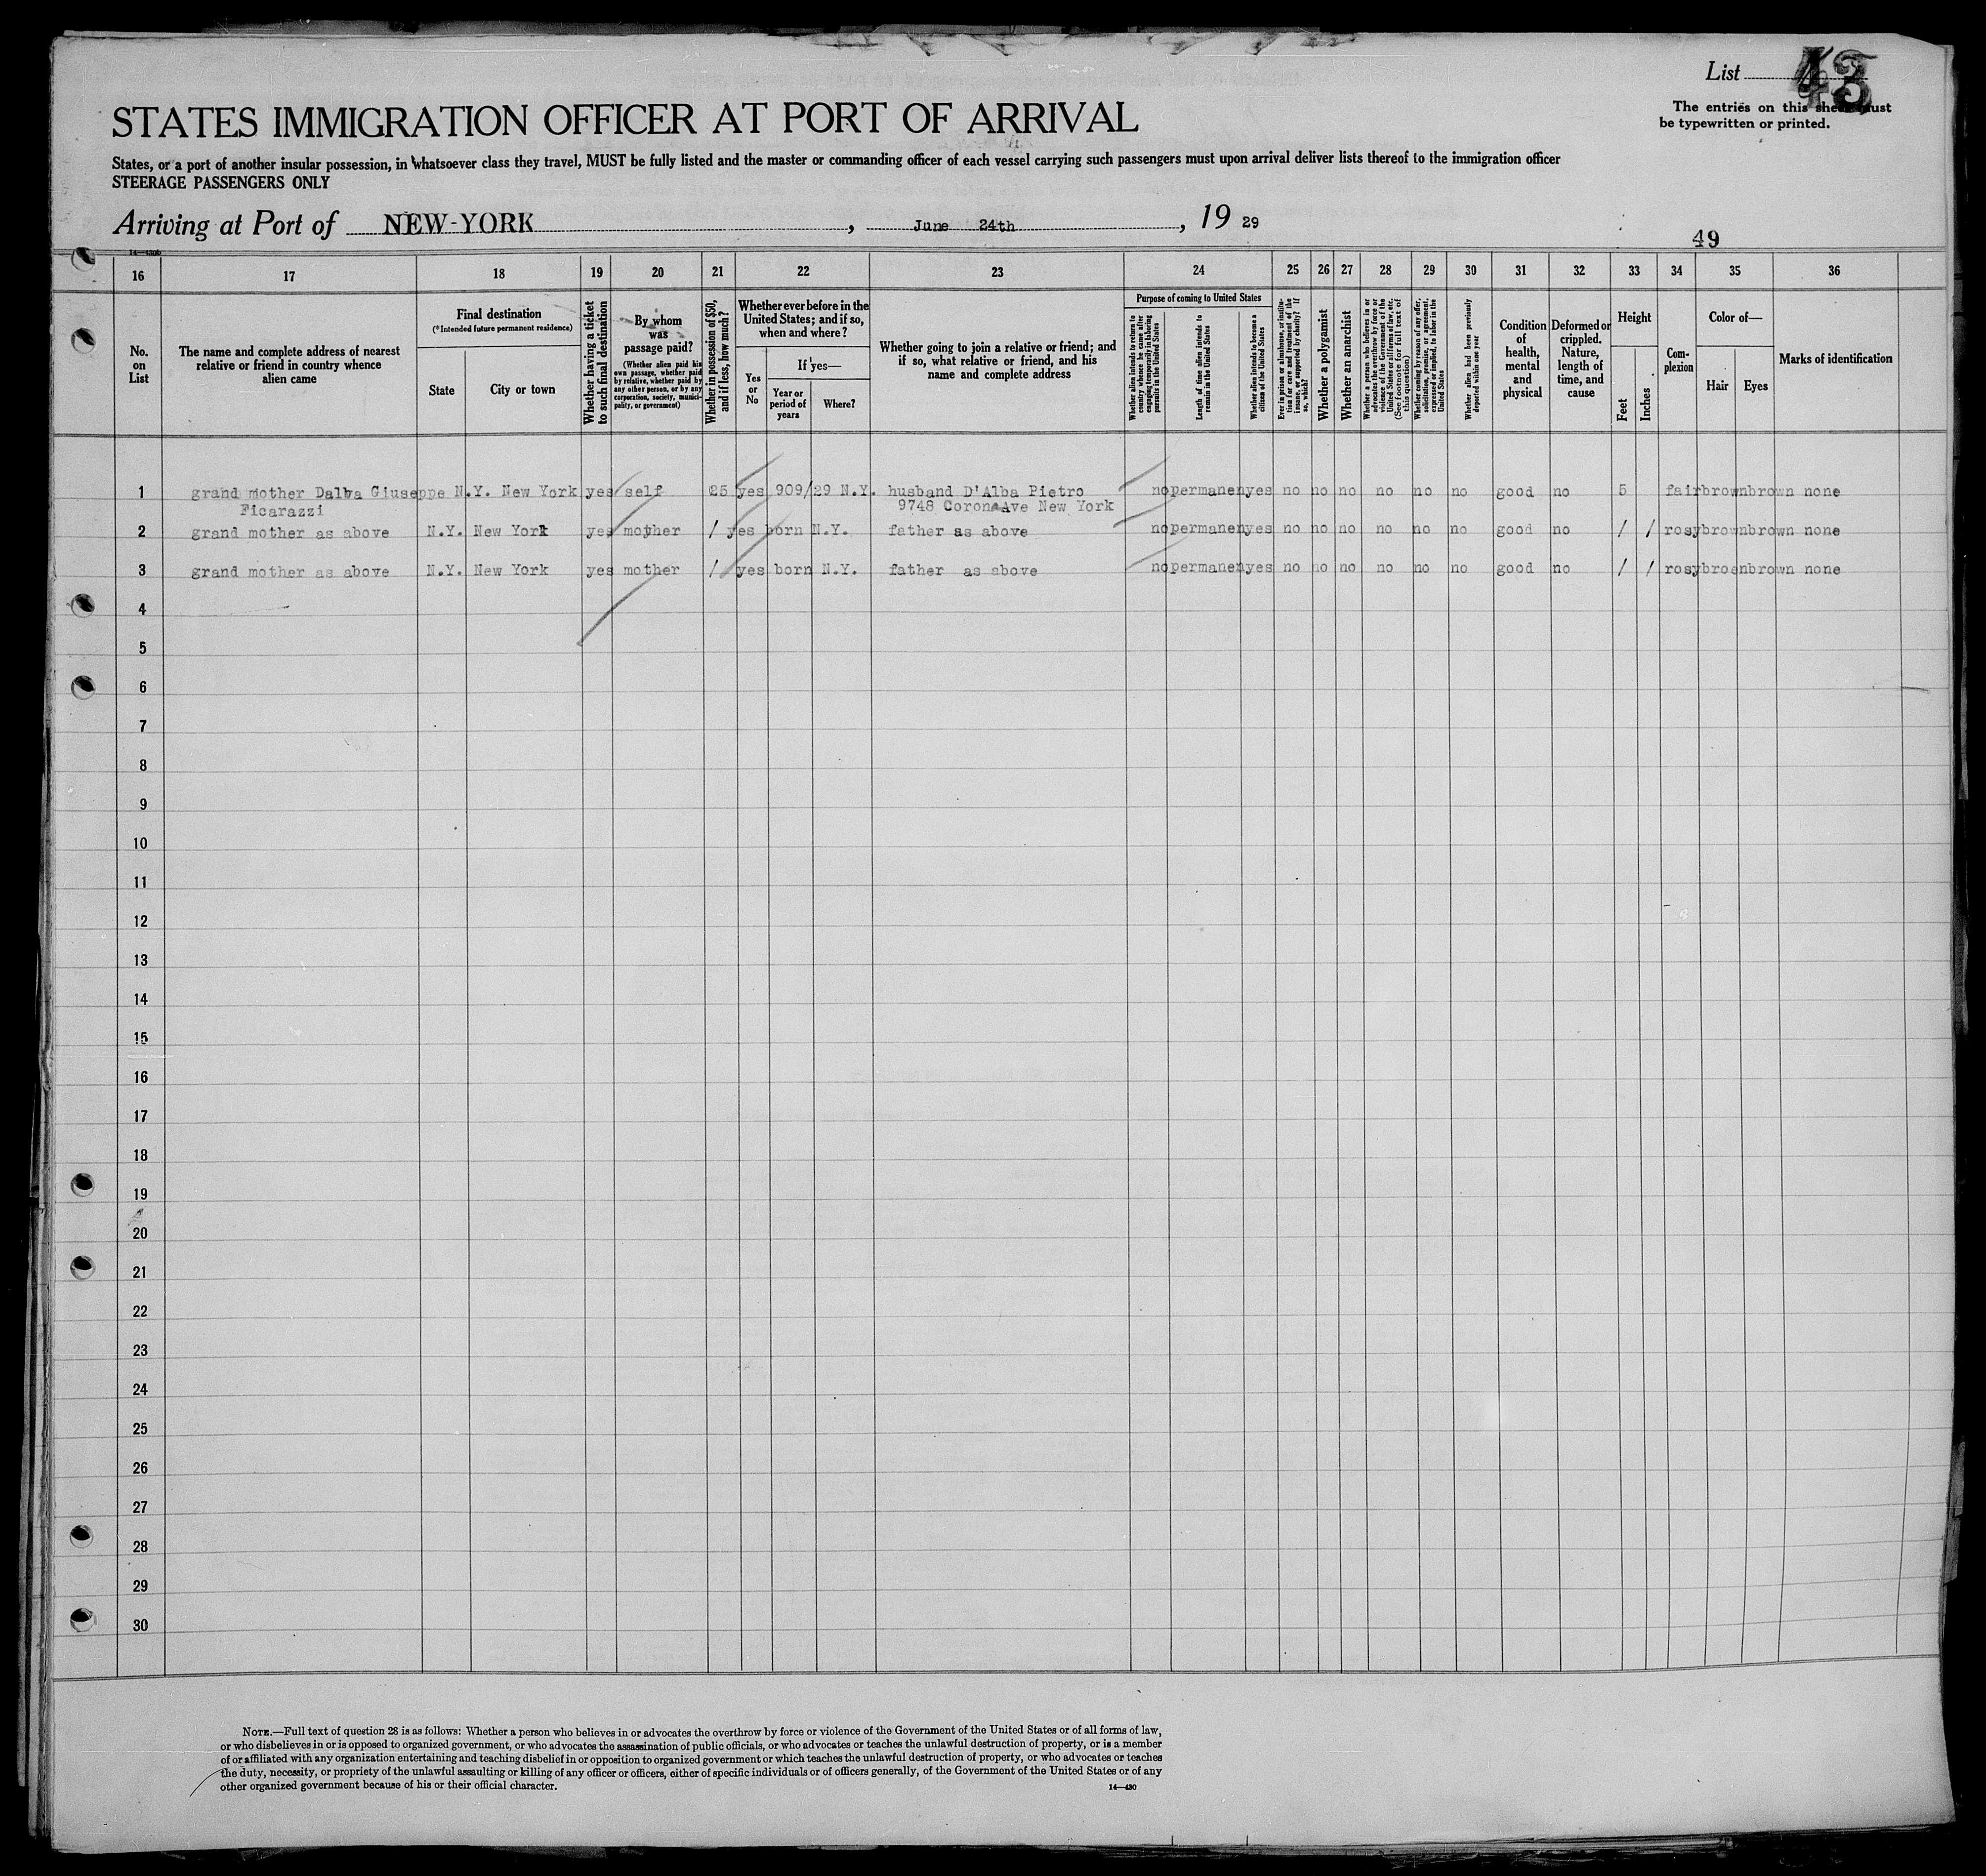 List 43
The entries on this sheet must
be typewritten or printed.
STATES IMMIGRATION OFFICER AT PORT OF ARRIVAL
States, or a port of another insular possession, in whatsoever class they travel, MUST be fully listed and the master or commanding officer of each vessel carrying such passengers must upon arrival deliver lists thereof to the immigration officer
STEERAGE PASSENGERS ONLY
Arriving at Port of NEW-YORK, June 24th, 19 29
49
14—430b
16 17 18 19 20 21 22 23 24 25 26 27 28 29 30 31 32 33 34 35 36
No.
on
List
The name and complete address of nearest
relative or friend in country whence
alien came
Final destination
(*Intended future permanent residence)
State
City or town
Whether having a ticket
to such final destination
By whom
was
passage paid?
(Whether alien paid his
own passage, whether paid
by relative, whether paid by
any other person, or by any
corporation, society, munici-
pality, or government)
Whether in possession of $50,
and if less, how much?
Whether ever before in the
United States; and if so,
when and where?
Yes
or
No
If yes—
Year or
period of
years
Where?
Whether going to join a relative or friend; and
if so, what relative or friend, and his
name and complete address
Purpose of coming to United States
Whether alien intends to return to
country whence he came after
engaging temporarily in laboring
pursuits in the United States
Length of time alien intends to
remain in the United States
Whether alien intends to become a
citizen of the United States
Ever in prison or almshouse, or institu-
tion for care and treatment of the
insane, or supported by charity? If
so, which?
Whether a polygamist
Whether an anarchist
Whether a person who believes in or
advocates the overthrow by force or
violence of the Government of the
United States or all forms of law, etc.
(See footnote for full text of
this question)
Whether coming by reason of any offer,
solicitation, promise, or agreement,
expressed or implied, to labor in the
United States
Whether alien had been previously
deported within one year
Condition
of
health,
mental
and
physical
Deformed or
crippled.
Nature,
length of
time, and
cause
Height
Feet
Inches
Com-
plexion
Color of—
Hair
Eyes
Marks of identification
1 grand mother Dalba Giuseppe N.Y. New York yes self 25 yes 909/29 N.Y. husband D'Alba Pietro no permanen yes no no no no no no good no 5 fair brown brown none
Ficarazzi 9748 Corona Ave New York
2 grand mother as above N.Y. New York yes mother / yes born N.Y. father as above no permanen yes no no no no no no good no / / rosy brown brown none
3 grand mother as above N.Y. New York yes mother / yes born N.Y. father as above no permanen yes no no no no no no good no / / rosy broen brown none
4
5
6
7
8
9
10
11
12
13
14
15
16
17
18
19
20
21
22
23
24
25
26
27
28
29
30
NOTE.—Full text of question 28 is as follows: Whether a person who believes in or advocates the overthrow by force or violence of the Government of the United States or of all forms of law,
or who disbelieves in or is opposed to organized government, or who advocates the assassination of public officials, or who advocates or teaches the unlawful destruction of property, or is a member
of or affiliated with any organization entertaining and teaching disbelief in or opposition to organized government or which teaches the unlawful destruction of property, or who advocates or teaches
the duty, necessity, or propriety of the unlawful assaulting or killing of any officer or officers, either of specific individuals or of officers generally, of the Government of the United States or of any
other organized government because of his or their official character.
14—430